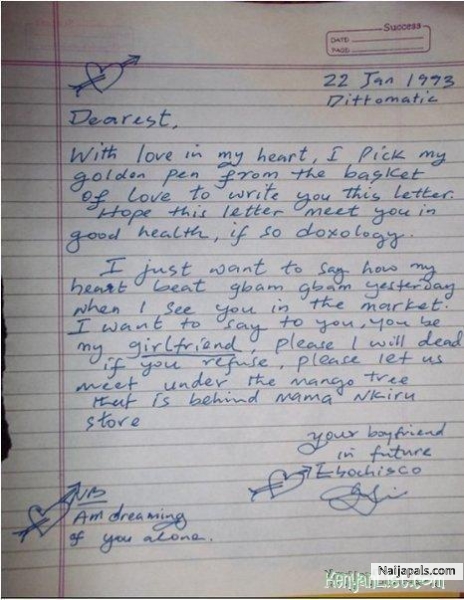 Success
DATE:
PAGE:
22 Jan 1993
Dittomatic
Dearest,
With love in my heart, I pick my
golden pen from the basket
of love to write you this letter.
Hope this letter meet you in
good health, if so doxology.
I just want to say how my
heart beat gbam gbam yesterday
when I see you in the market.
I want to say to you, you be
my girlfriend, please I will dead
if you refuse, please let us
meet under the mango tree
that is behind mama Nkiru
store
your boyfriend
in future
Ebochisco
NB
Am dreaming
of you alone.
Naijapals.com